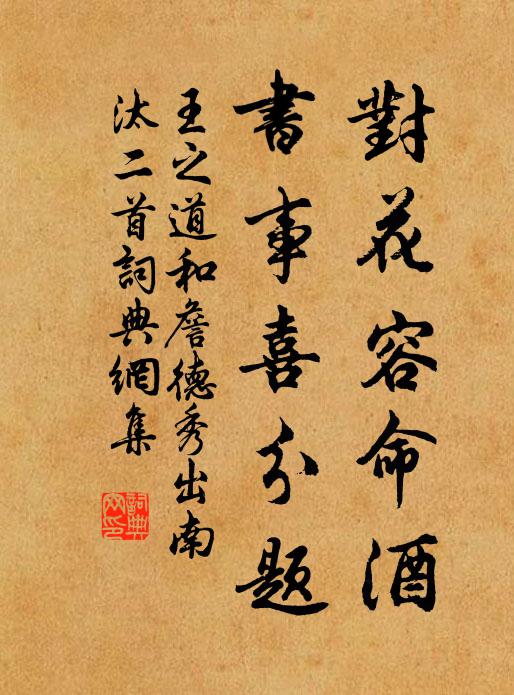 對花容命酒
書事喜分题
王之道和詹德秀出南
汰二首詞典網集
詞典
网印